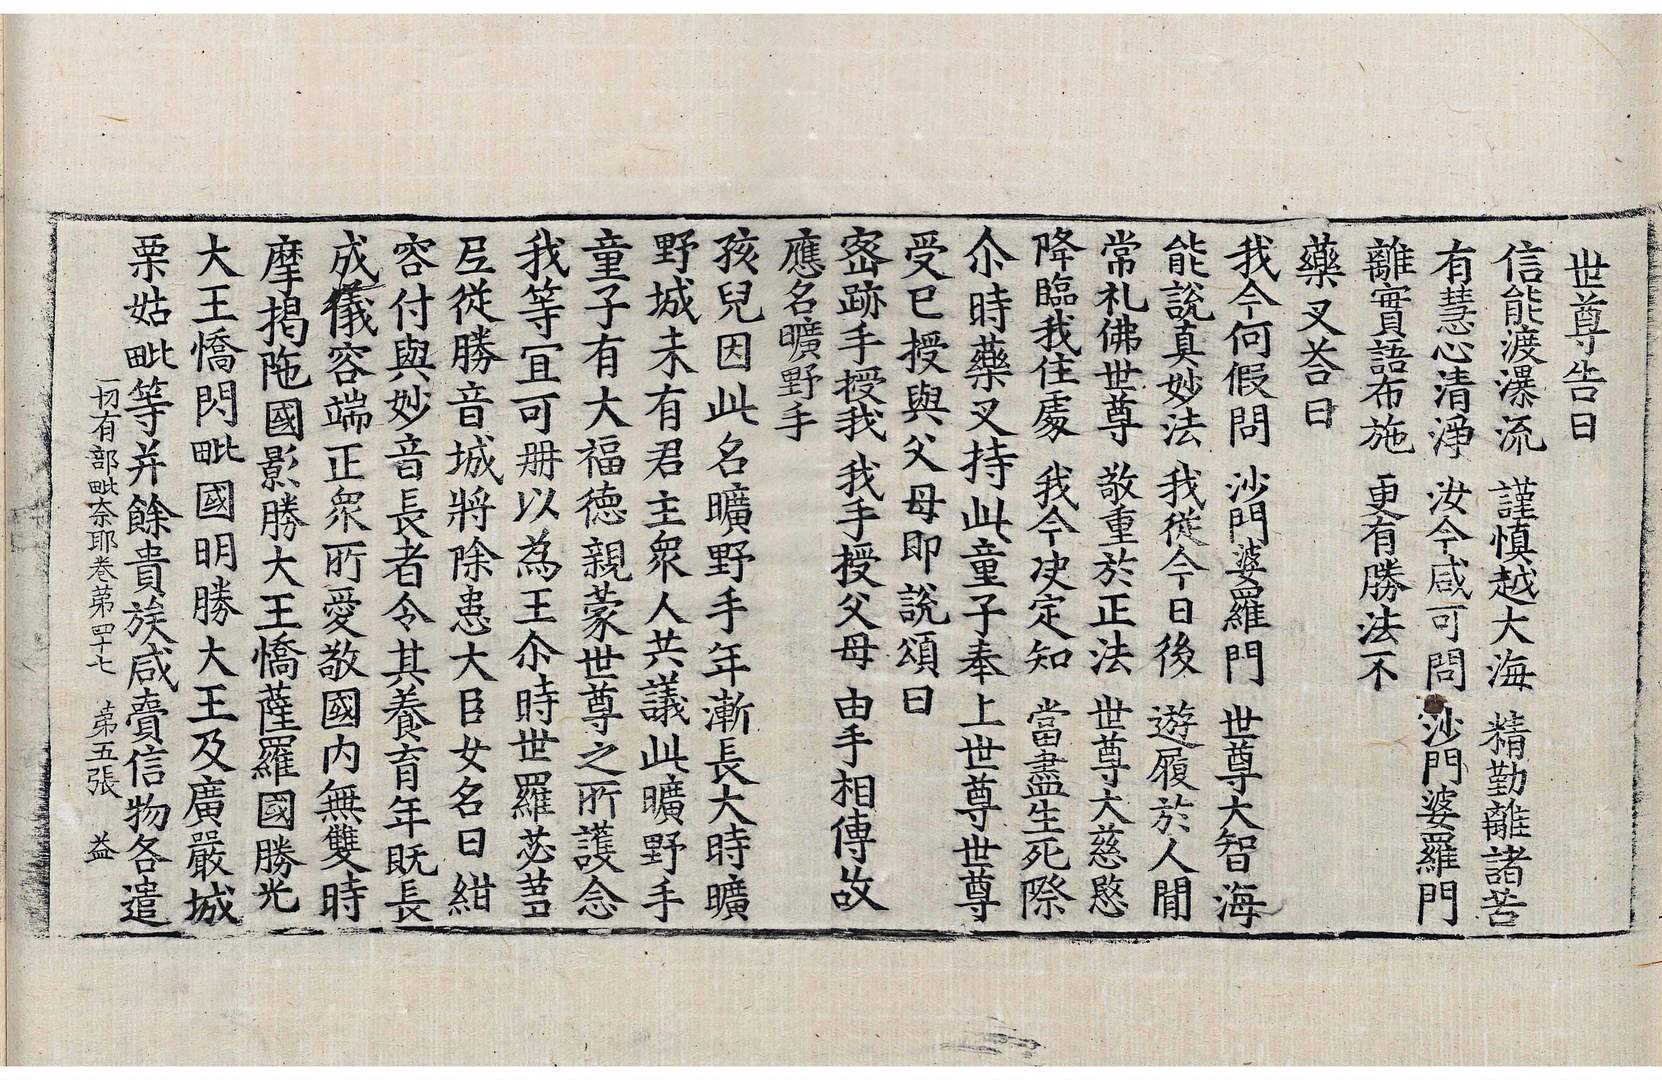 世尊告曰
信能渡瀑流　謹慎越大海　精勤離諸苦
有慧心清淨　汝今咸可問　沙門婆羅門
離實語布施　更有勝法不
藥叉荅曰
我今何假問　沙門婆羅門　世尊大智海
能說真妙法　我從今日後　遊履於人間
常礼佛世尊　敬重於正法　世尊大慈愍
降臨我住處　我今决定知　當盡生死際
尒時藥叉持此童子奉上世尊世尊
受已授與父母即說頌曰
宻跡手授我　我手授父母　由手相傳故
應名曠野手
孩兒因此名曠野手年漸長大時曠
野城未有君主衆人共議此曠野手
童子有大福德親蒙世尊之所護念
我等冝可册以為王尒時世羅苾蒭
𠯁從勝音城將除患大臣女名曰紺
容付與妙音長者令其養育年既長
成儀容端正衆所愛敬國内無雙時
摩揭陁國影勝大王憍薩羅國勝光
大王憍閃毗國明勝大王及廣嚴城
栗姑毗等并餘貴族咸賷信物各遣
一切有部毗奈耶卷第四十七　第五張　益